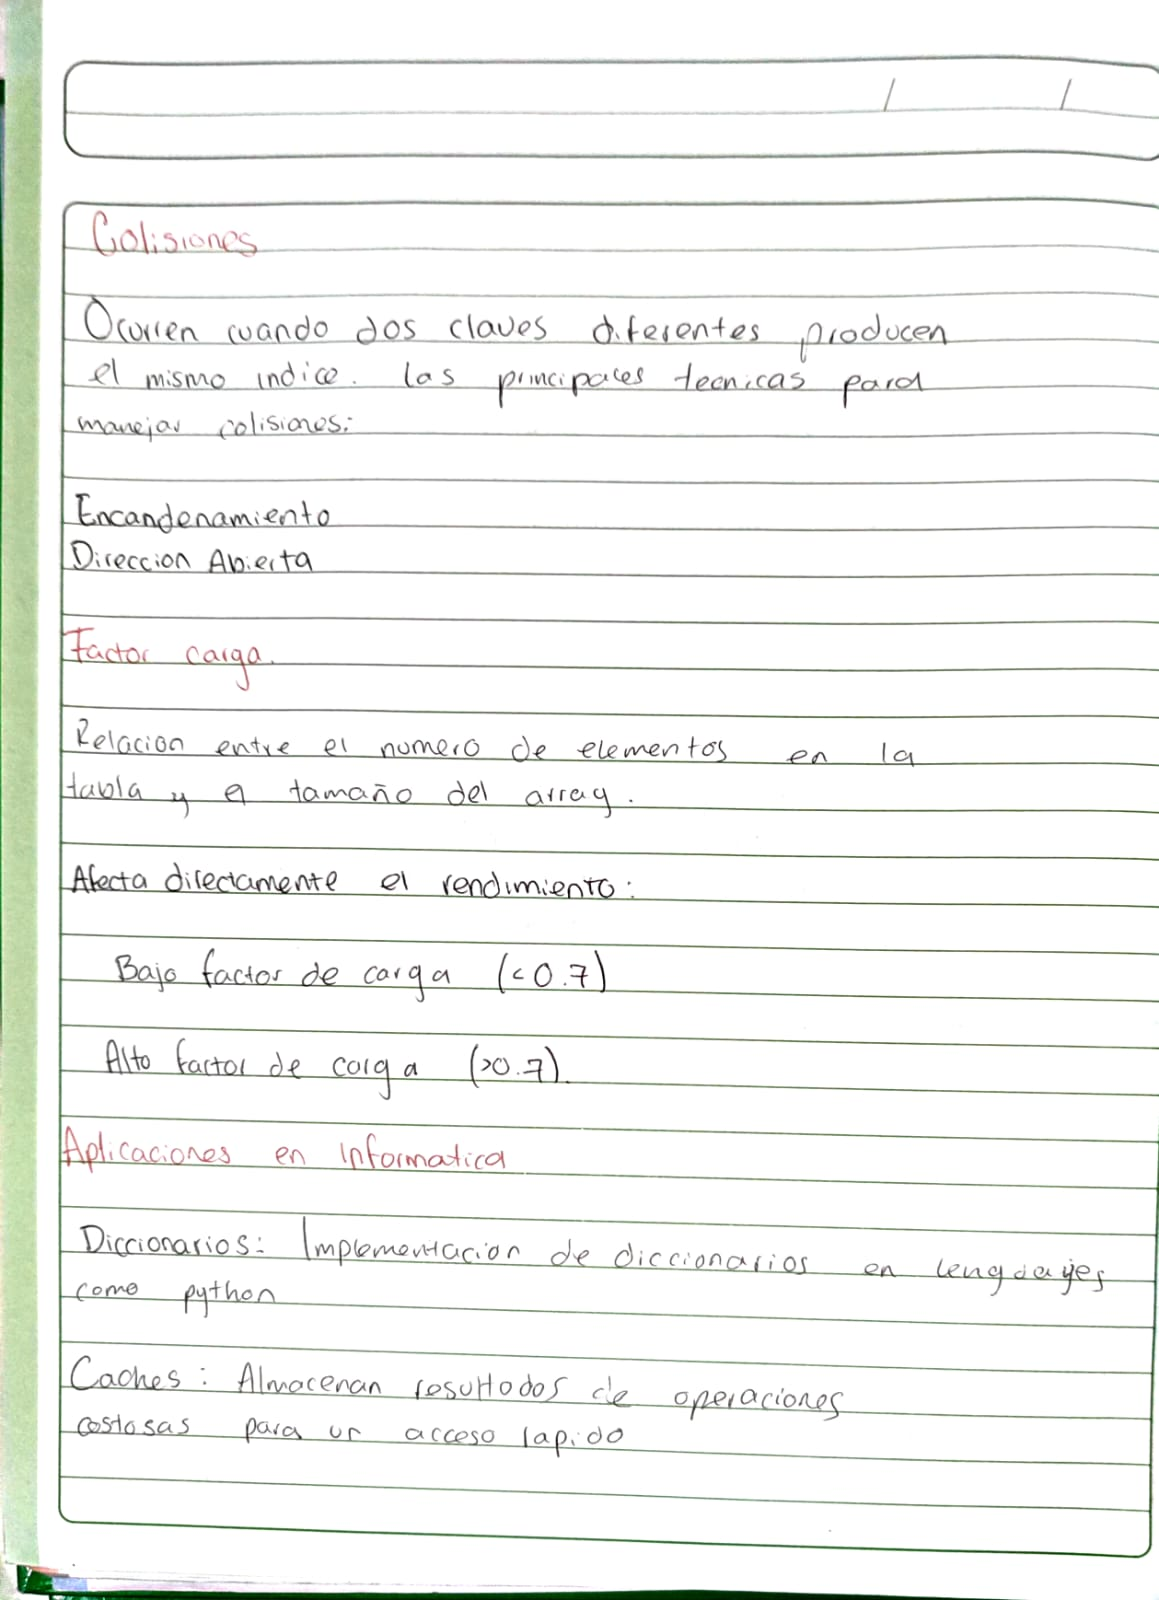 / /
Colisiones
Ocurren cuando dos claves diferentes producen
el mismo indice. las principales tecnicas para
manejar colisiones:
Encandenamiento
Direccion Abierta
Factor carga.
Relacion entre el numero de elementos en la
tabla y el tamaño del array.
Afecta directamente el rendimiento:
Bajo factor de carga (<0.7)
Alto factor de carga (>0.7).
Aplicaciones en Informatica
Diccionarios: Implementacion de diccionarios en lenguajes
como python
Caches: Almacenan resultados de operaciones
costosas para un acceso rapido